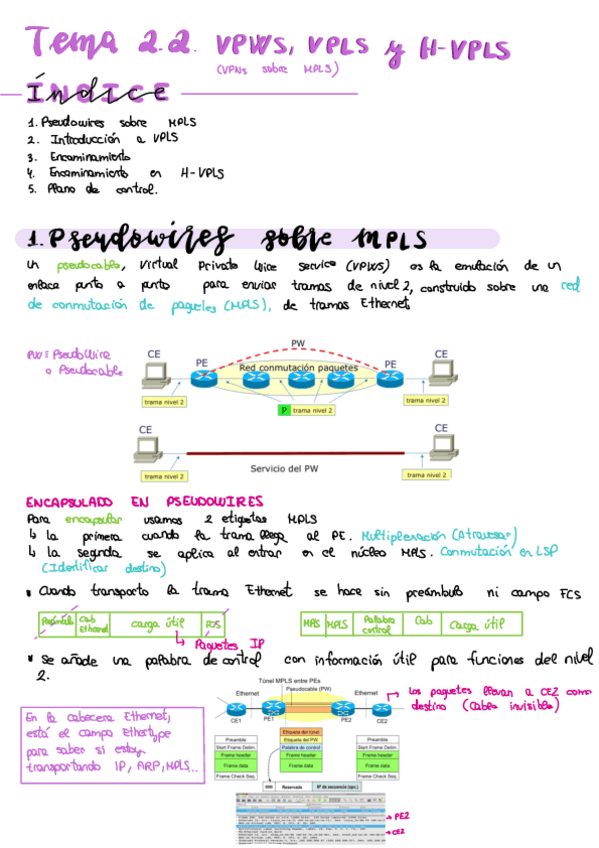 Tema 2.2. VPWS, VPLS y H-VPLS
(VPNs sobre MPLS)
Índice
1. Pseudowires sobre MPLS
2. Introducción a VPLS
3. Encaminamiento
4. Encaminamiento en H-VPLS
5. Plano de control.
1. Pseudowires sobre MPLS
Un pseudocable, Virtual Private Wire Service (VPWS) es la emulación de un
enlace punto a punto para enviar tramas de nivel 2, construido sobre una red
de conmutación de paquetes (MPLS), de tramas Ethernet.
PW ≡ PseudoWire
o Pseudocable
PW
CE
PE
Red conmutación paquetes
PE
CE
trama nivel 2
P trama nivel 2
trama nivel 2
CE
CE
trama nivel 2
Servicio del PW
trama nivel 2
ENCAPSULADO EN PSEUDOWIRES
Para encapsular usamos 2 etiquetas MPLS
↳ la primera cuando la trama llega al PE. Multiplexación (Atravesar)
↳ la segunda se aplica al entrar en el núcleo MPLS. Conmutación en LSP
(Identificar destino)
• Cuando transporto la trama Ethernet se hace sin preámbulo ni campo FCS
Preámbulo Cab Ethernet carga útil FCS
MPLS MPLS Palabra control Cab Carga útil
↳ Paquetes IP
• Se añade una palabra de control con información útil para funciones del nivel
2.
Túnel MPLS entre PEs
Ethernet
Pseudocable (PW)
Ethernet
CE1
PE1
PE2
CE2
↳ Los paquetes llevan a CE2 como
destino (Cable invisible)
En la cabecera Ethernet,
está el campo Ethertype
para saber si estoy
transportando IP, ARP, MPLS...
Etiqueta del túnel
Preamble
Etiqueta del PW
Preamble
Start Frame Delim.
Palabra de control
Start Frame Delim.
Frame header
Frame header
Frame header
Frame data
Frame data
Frame data
Frame Check Seq.
Frame Check Seq.
0000 Reservado Nº de secuencia (opc.)
→ PE2
→ CE2